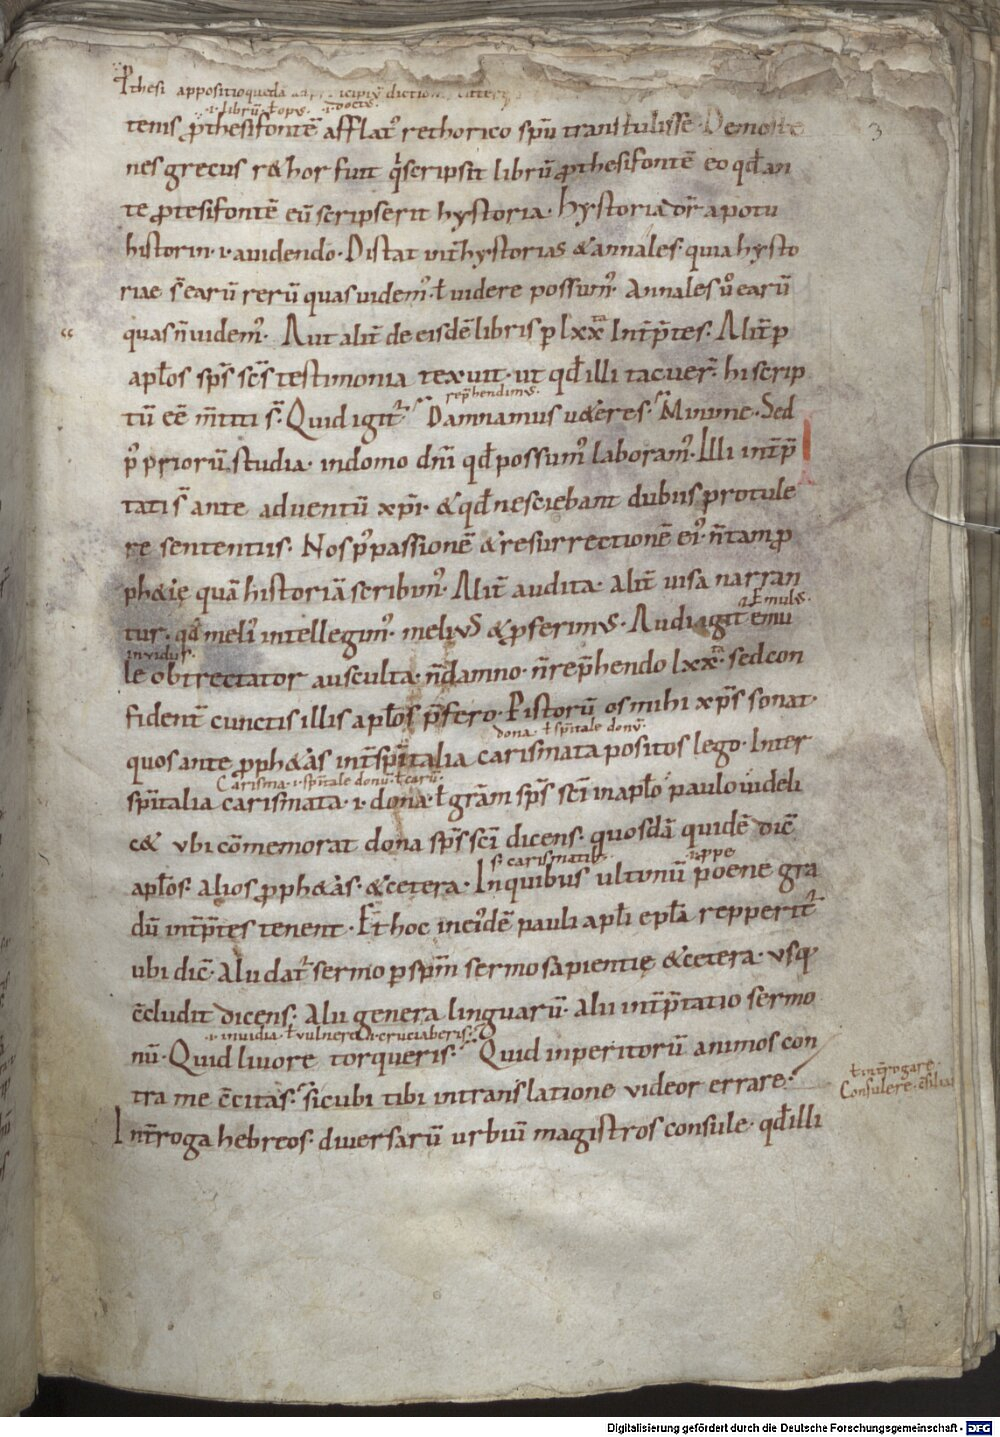 P̄thesi appositio quedā dictioni
.i. librū ł op⁹. .i. docte.
tenis ꝓthesifontē afflat᷒ rethorico spū transtulisse· Demoste
nes grecus r&hor fuit q͛ scripsit librū ꝓthesifontē eo qđ an
te ꝓtesifontē eū scripserit hystoria· Hystoria dr̄ apotu
historin· i· auidendo· Distat int̄ hystorias & annales· quia hysto
riae s̄ earū rerū quas uidem᷒· ł uidere possum᷒· Annales u͛o earū
quas n̄ uidem᷒· Aut alit̄ de eisdē libris p lxxᵗᵃ Int̄p̄tes· Alit̄ p
apłos sp̄s sc̄s testimonia texuit· ut qđ illi tacuer̄· hi scrip
tū eē m̄titi s̄· Quid igit᷒ Damnamus u&eres· Minime· Sed
rep̄hendim⁹·
p᷒ priorū studia· in domo dn̄i qđ possum᷒ laboram᷒· Illi int̄p̄
tati s̄ ante aduentū xp̄i· & qđ nesciebant dubiis protule
re sententiis· Nos p᷒ passionē & resurrectionē ei᷒· n̄ tam ꝓ
ph&ię quā historiā scribim᷒· Alit̄ audita· Alit̄ uisa narran
tur· qđ meli᷒ intellegim᷒· melius & ꝓferim⁹· Audi igit᷒ emu
ł Emul⁹·
inuidus·
le obtrectator ausculta· n̄ damno· n̄ rep̄hendo lxxᵗᵃ· sed con
fident̄ cunctis illis apłos p̄fero· Pistorū os mihi xp̄s sonat·
dona ł sp̄itale donū·
quos ante ꝓph&as int̄ sp̄italia carismata positos lego· Inter
Carisma· i· sp̄itale donū· ł carū·
sp̄italia carismata· i· dona· ł grām sp̄s sc̄i in apło paulo uideli
c& ubi cōmemorat dona sp̄s sc̄i dicens· quosdā quidē dic̄
s· carismatib⁹· .i. ppe
apłos· alios ꝓph&as· & cetera· In quibus ultimū poene gra
dū int̄p̄tes tenent· Et hoc in ei᷒dē pauli apłi epła repperit᷒
ubi dic̄ Alii dat᷒ sermo p sp̄m sermo sapientię & cetera· usq;
c̄cludit dicens· Alii genera linguarū· Alii int̄p̄tatio sermo
.i. inuidia· ł uulnere .i. cruciaberis·
nū· Quid liuore torqueris· Quid inperitorū animos con
tra me c̄citas· Sicubi tibi in translatione uideor errare·
ł int̄rogare·
Consulere· c̄siliū
Int̄roga hebreos· diuersarū urbiū magistros consule· qđ illi
3
Digitalisierung gefördert durch die Deutsche Forschungsgemeinschaft - DFG